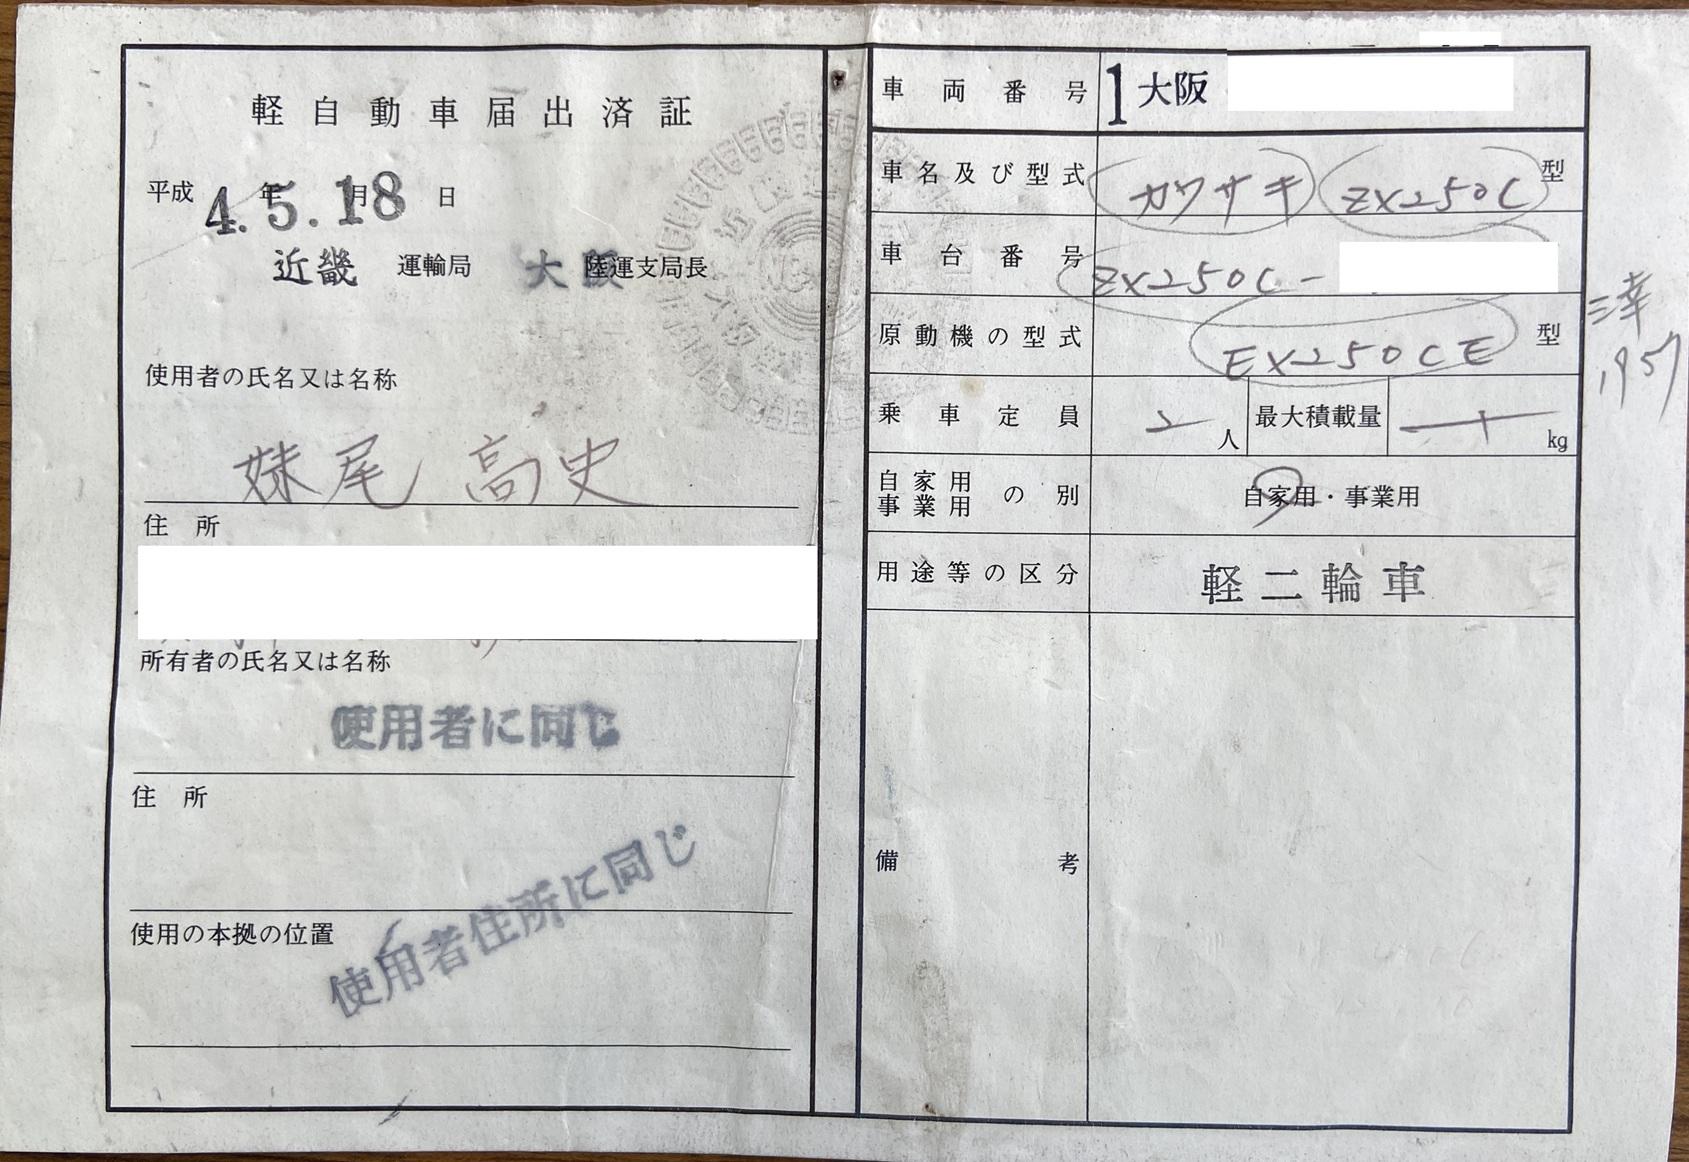 軽自動車届出済証
平成 4.年5.月18日
近畿 運輸局 大阪陸運支局長
使用者の氏名又は名称
妹尾 高史
住所
所有者の氏名又は名称
使用者に同じ
住所
使用者住所に同じ
使用の本拠の位置
車両番号 1大阪
車名及び型式 カワサキ ZX250C 型
車台番号 ZX250C-
原動機の型式 EX250CE 型
乗車定員 2人 最大積載量 — kg
自家用事業用の別 自家用・事業用
用途等の区分 軽二輪車
備考